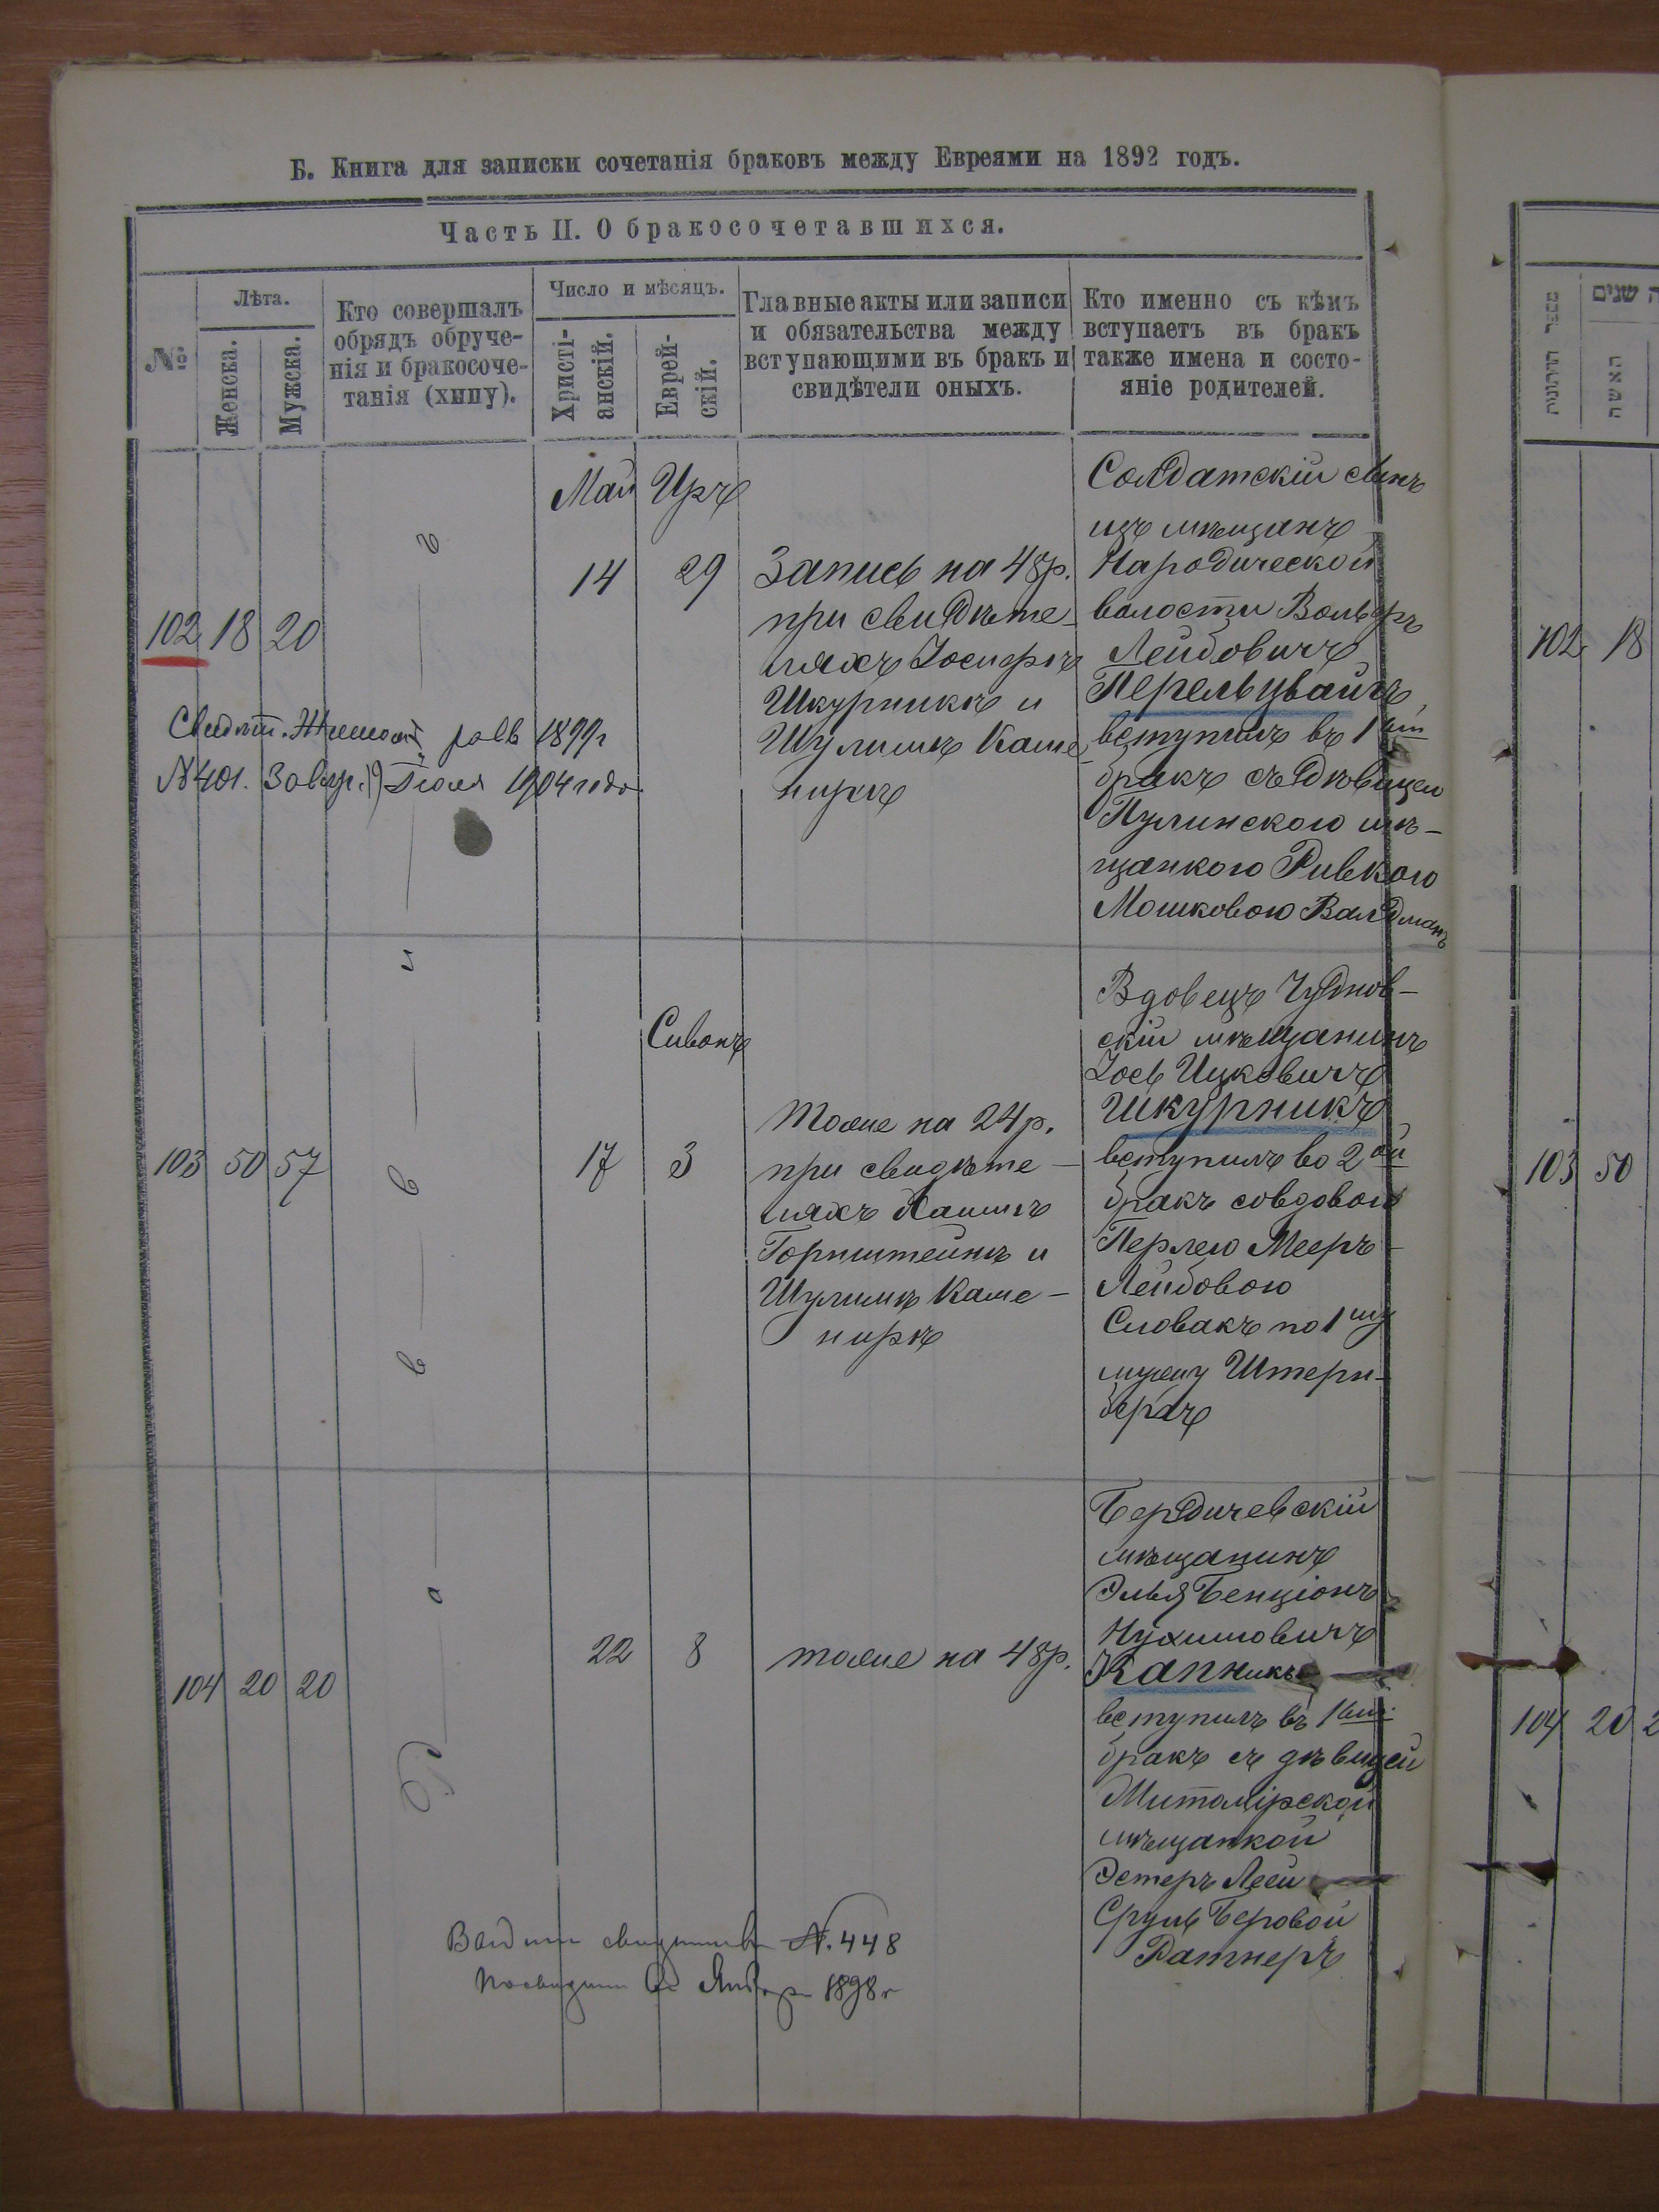 Б. Книга для записки сочетанія браковъ между Евреями на 1892 годъ.
Часть II. О бракосочетавшихся.
№
Лѣта.
Женска.
Мужска.
Кто совершалъ
обрядъ обруче-
нія и бракосоче-
танія (хипу).
Число и мѣсяцъ.
Христі-
анскій.
Еврей-
скій.
Главные акты или записи
и обязательства между
вступающими въ бракъ и
свидѣтели оныхъ.
Кто именно съ кѣмъ
вступаетъ въ бракъ
также имена и состо-
яніе родителей.
102 18 20
Май
14
Иръ
29
Запись на 48р.
при свидѣте-
ляхъ Іосифѣ
Шкурникѣ и
Шулимѣ Каме-
нирѣ
Солдатскій сынъ
изъ мѣщанъ
Народической
волости Вольфъ
Лейбовичъ
Перельцвайгъ
вступилъ въ 1ый
бракъ съ дѣвицей
Пулинскою мѣ-
щанкою Ривкою
Мошковою Валдманъ
1899г
№401. 19 Іюля 1904 года
103 50 57
17
Сиванъ
3
тоже на 24р.
при свидѣте-
ляхъ Хаимѣ
Горнштейнѣ и
Шулимѣ Каме-
нирѣ
Вдовецъ Чуднов-
скій мѣщанинъ
Іось Ицковичъ
Шкурникъ
вступилъ во 2ой
бракъ со вдовою
Перлею Мееръ-
Лейбовою
Словакъ по 1му
мужу Штерн-
бергъ
104 20 20
22
8
тоже на 48р.
Бердичевскій
мѣщанинъ
Элья Бенціонъ
Нухимовичъ
Капникъ
вступилъ въ 1ый
бракъ съ дѣвицей
Житомірской
мѣщанкой
Эстеръ Леей
Сруль Беровой
Ратнеръ
№. 448
1898г
מספר הדרוגית
שנים
האשה
102 18
103 50
104 20 2